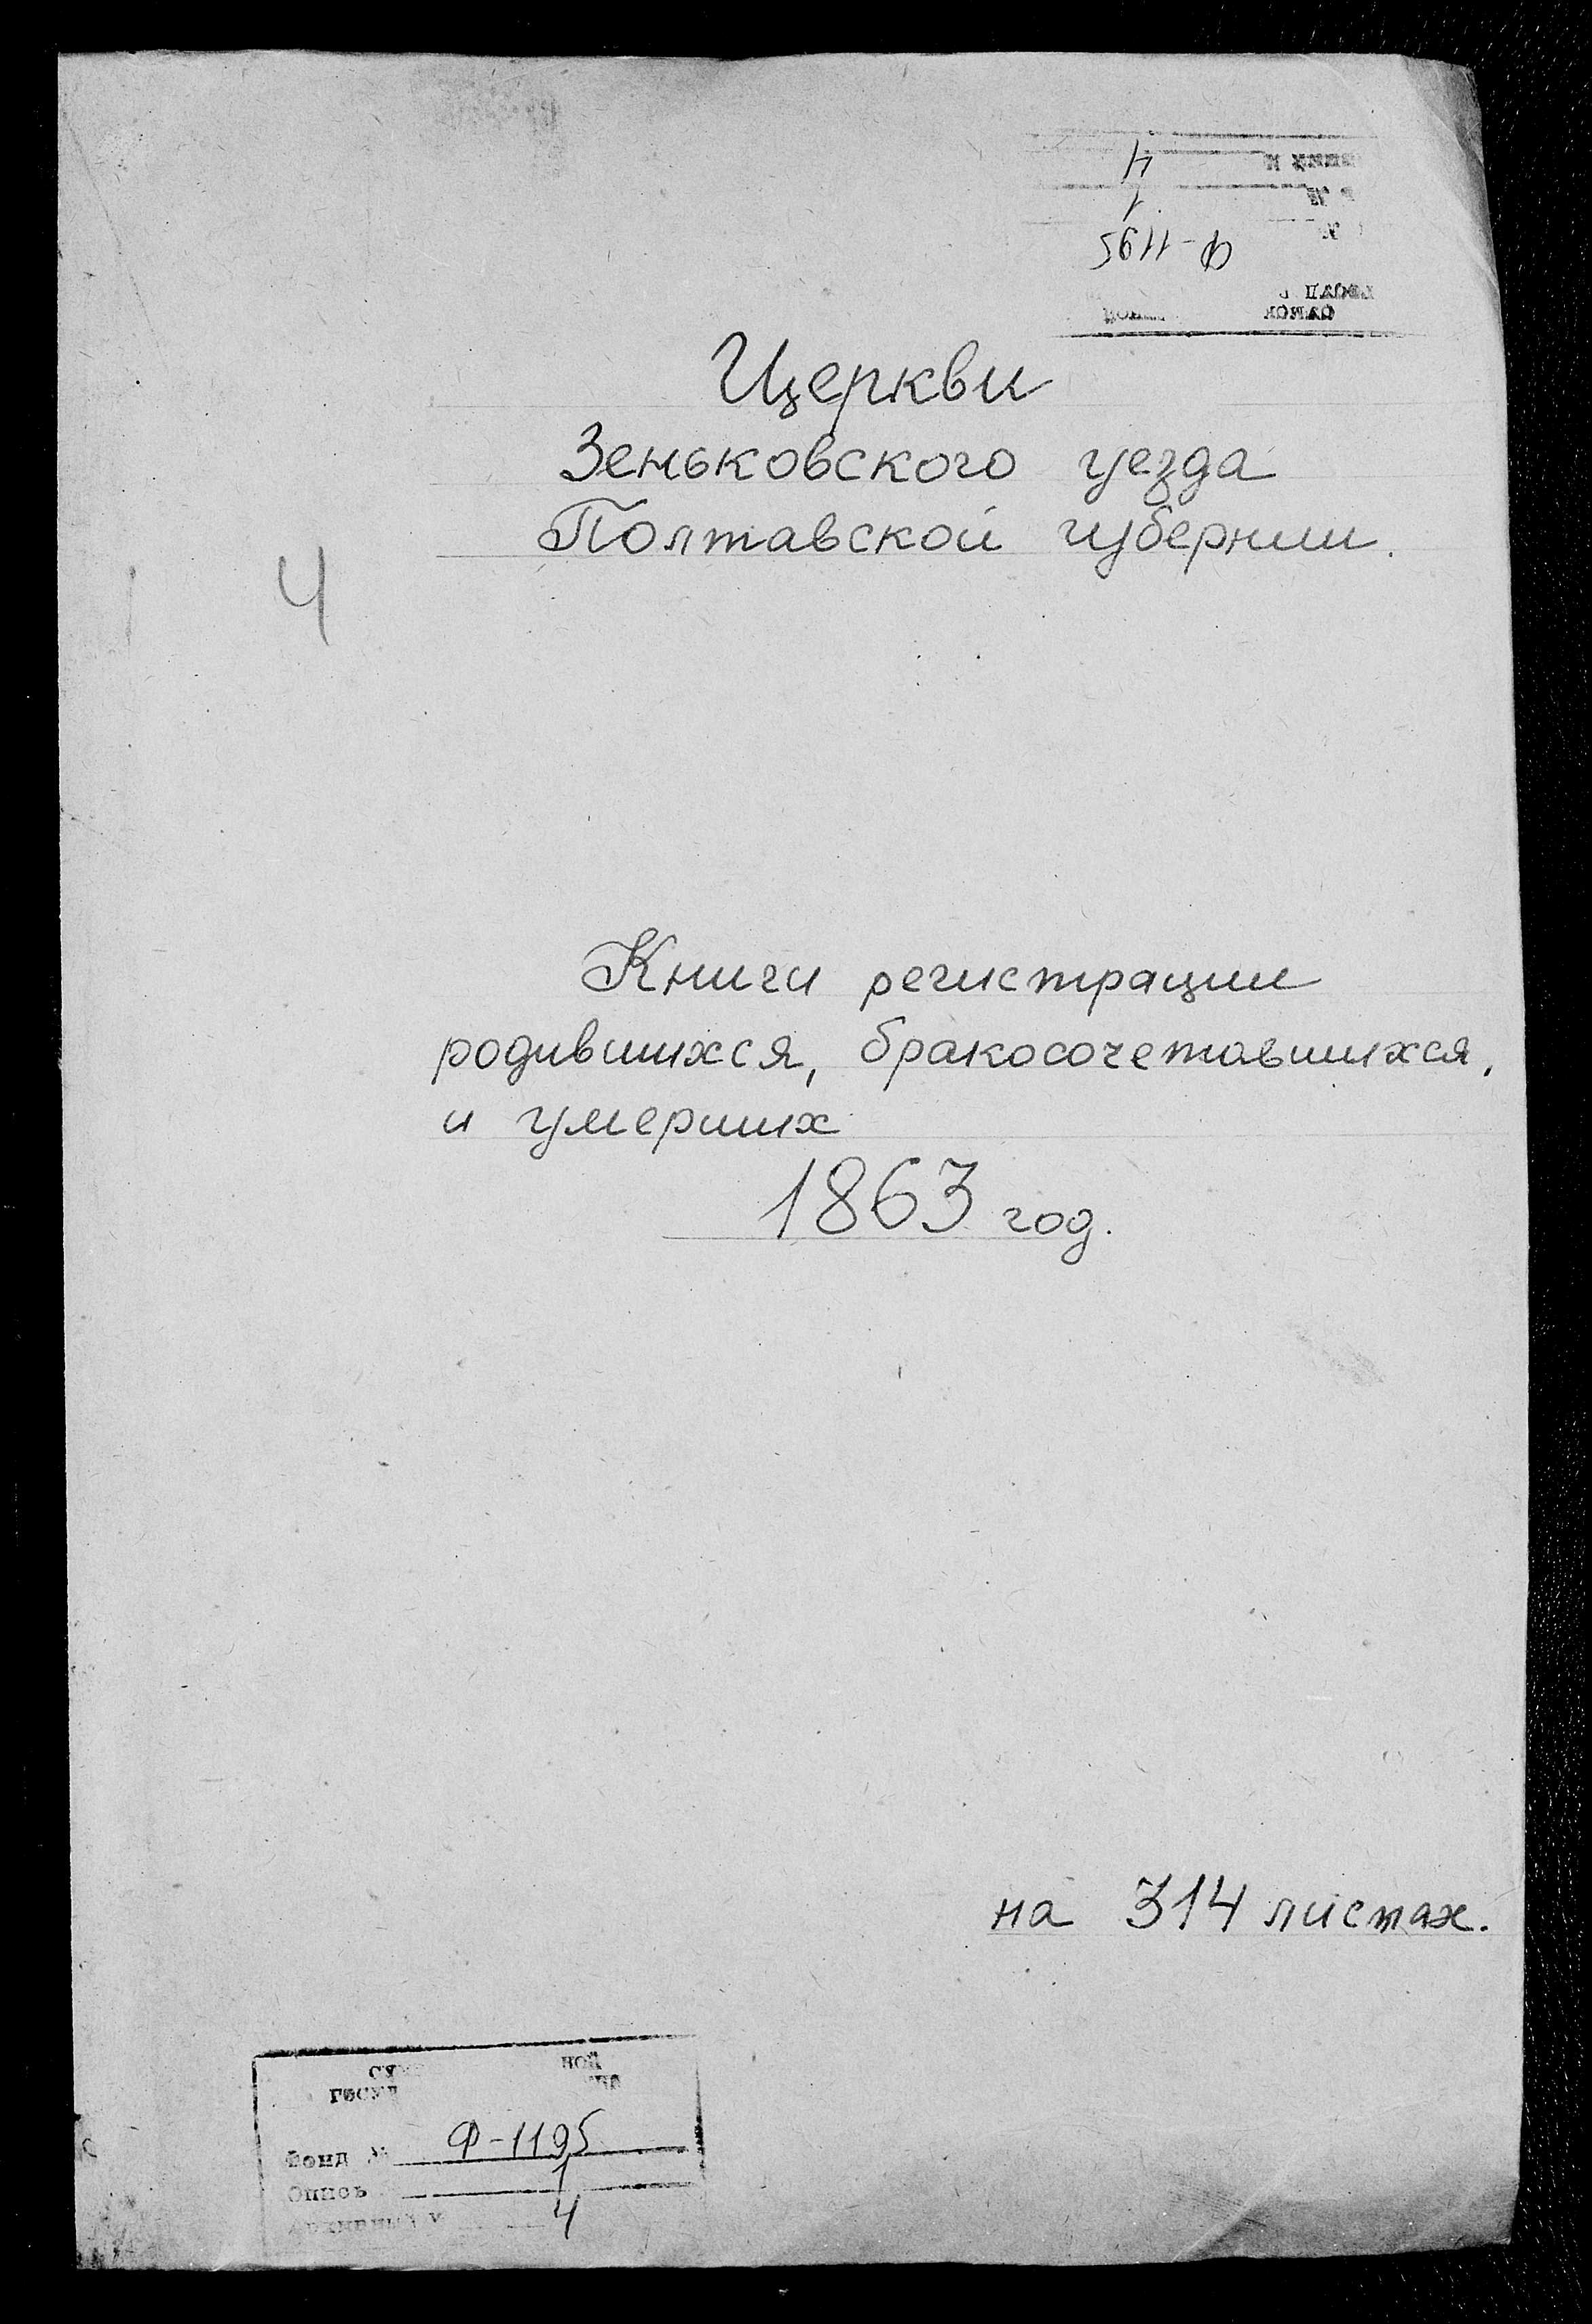 4
1
Ф-1195
Церкви
Зеньковского уезда
Полтавской губернии.
4
Книги регистрации
родившихся, бракосочетавшихся,
и умерших
1863 год.
на 314 листах.
Фонд № Ф-1195
Опись 1
4